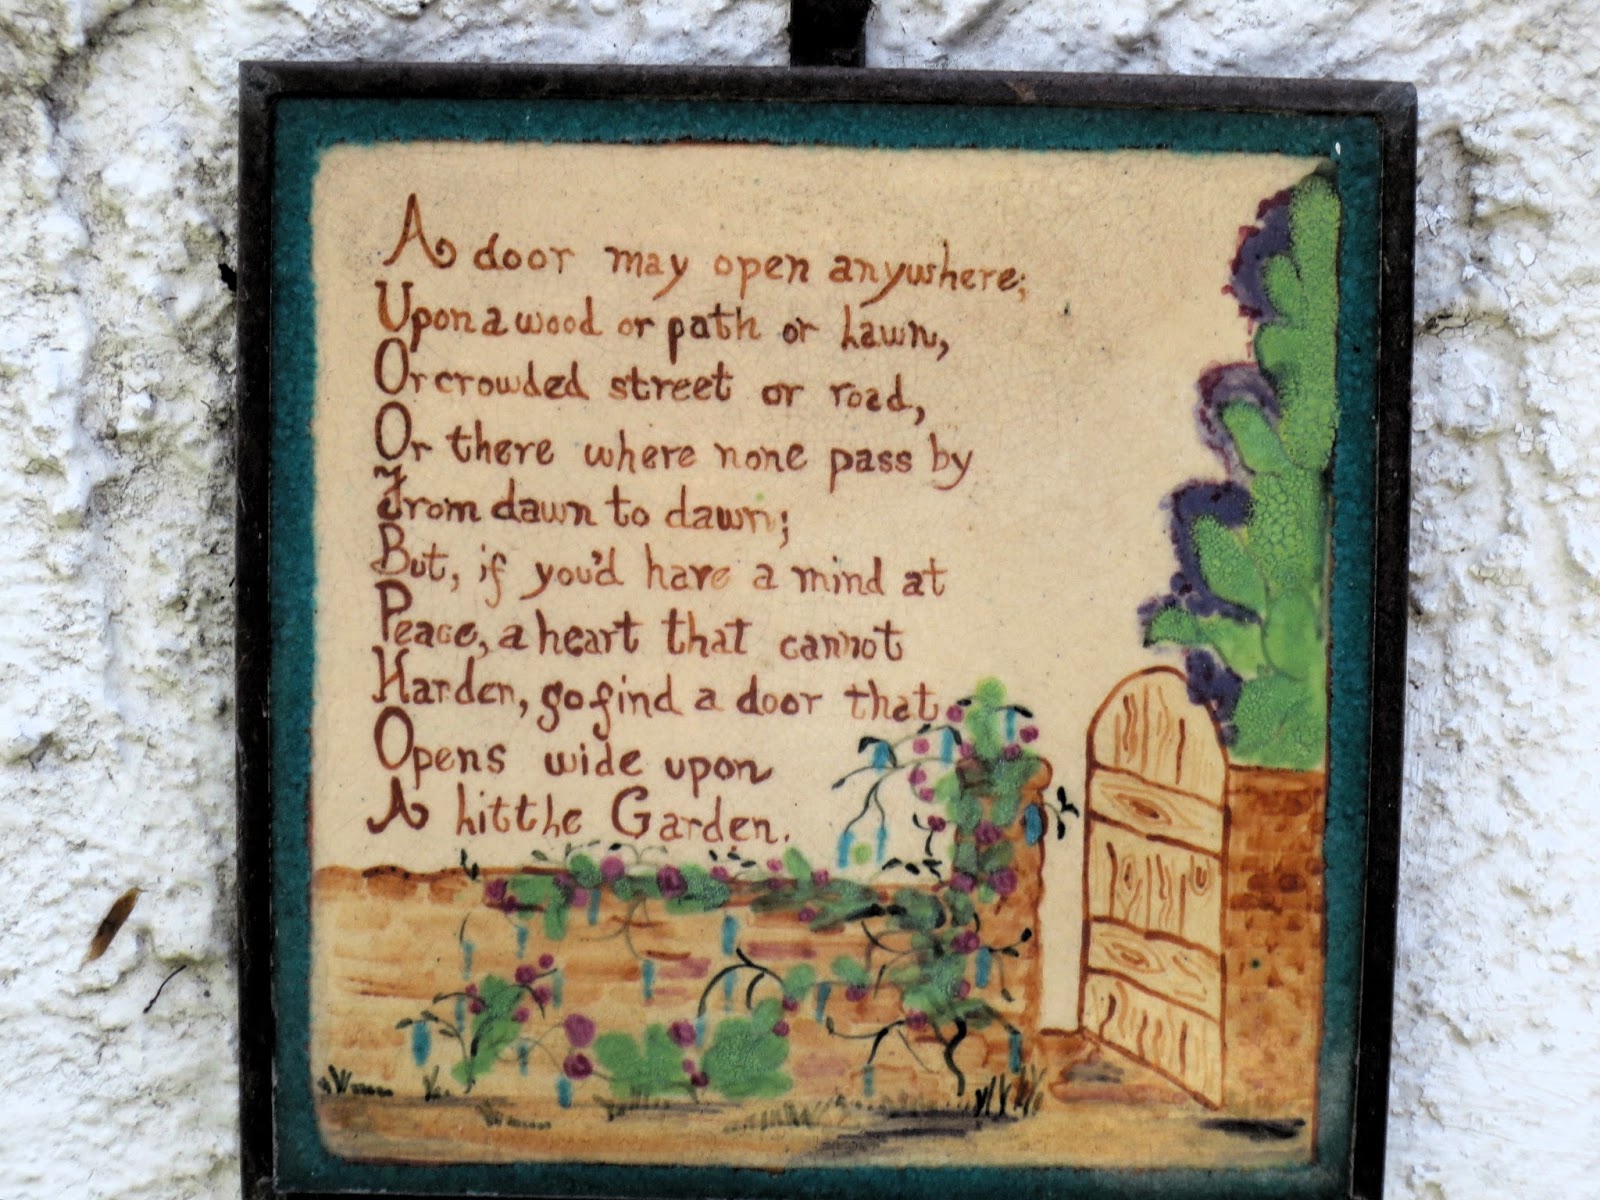 A door may open anywhere;
Upon a wood or path or lawn,
Or crowded street or road,
Or there where none pass by
From dawn to dawn;
But, if you'd have a mind at
Peace, a heart that cannot
Harden, go find a door that
Opens wide upon
A little Garden.